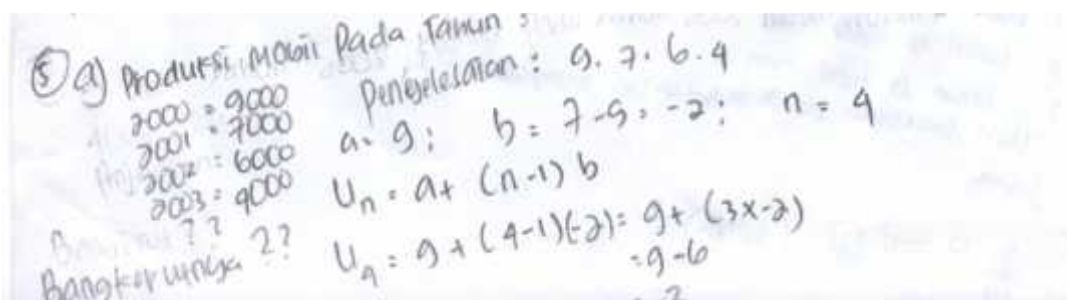 ⑤ a) Produksi mobil Pada Tahun :
2000 = 9000
2001 = 7000
2002 = 6000
2003 = 4000
??
Bangkrutnya ??
Penyelesaian : 9. 7. 6. 4
a = 9 ; b = 7-9 = -2 ; n = 4
Un = a + (n-1) b
U4 = 9 + (4-1)(-2) = 9 + (3x-2)
= 9-6